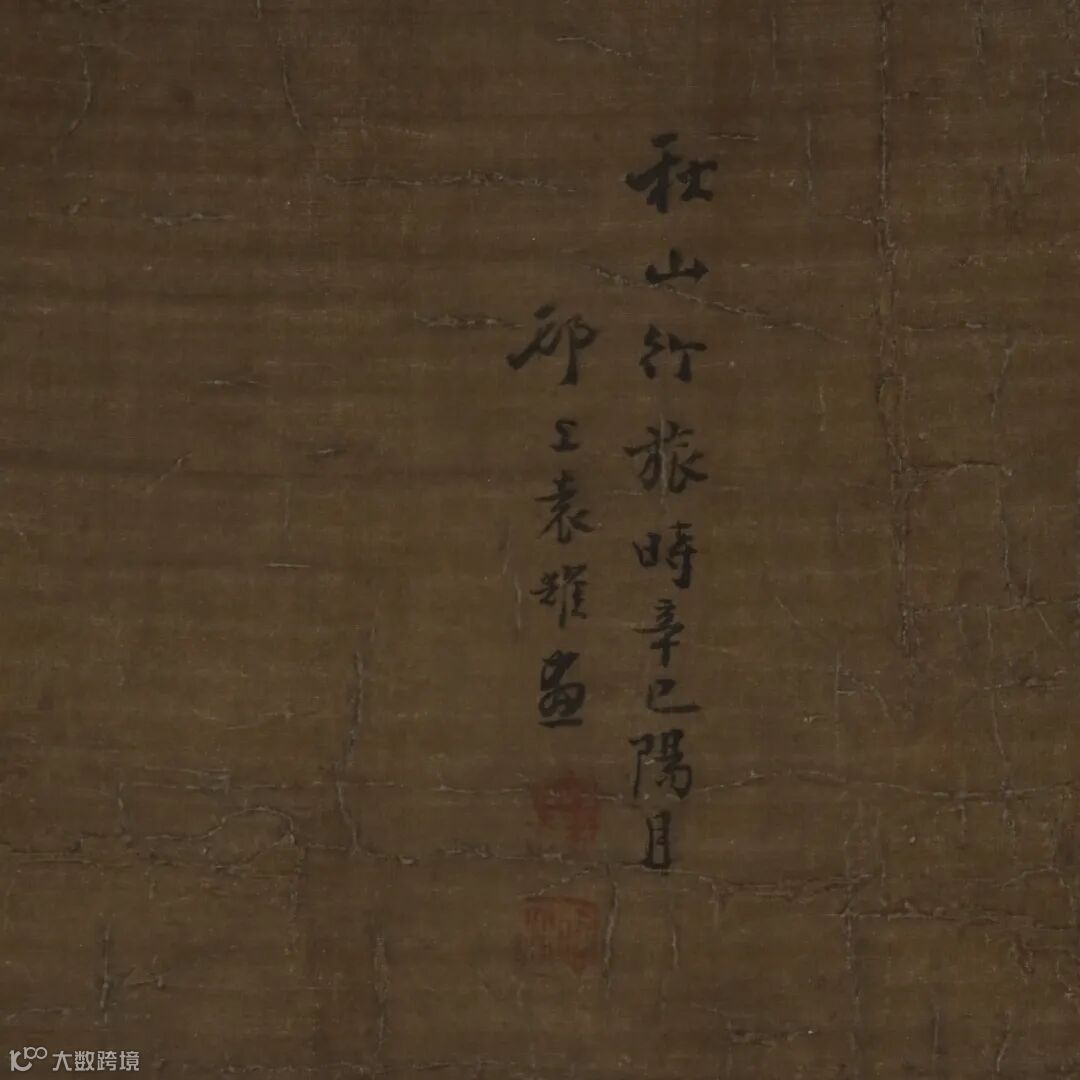 秋山行旅時辛巳陽月
邗上袁耀畫
大数跨境